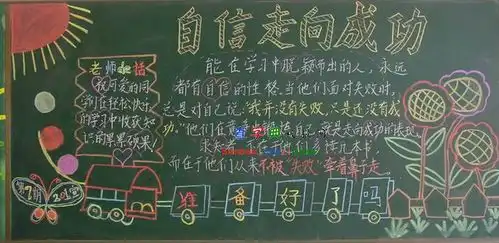 自信走向成功
老师的话
我可爱的同
学们在轻松、快乐
的学习中收获知
识的累累硕果!
能在学习中脱颖而出的人,永远
都有自信的性格.当他们面对失败时,
总是对自己说:"我并没有失败,只是还没有成
功."他们在
自己,就是走向成功的表现.
求知者
在于他们多读几本书,
而在于他们从来不被"失败"牵着鼻子走.
第7期
准备好了吗